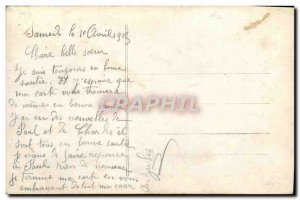 Samedi le 10 Avril 1915
Chère belle sœur
Je suis toujours en bonne
santée. Et j'espère que
ma carte vous trouvera
de même en bonne
j'ai eu des nouvelles de
Paul et de Charles il
sont tous en bonne santé
je viens de faire reponce
a Paul rien de nouveau
je termine ma carte en vous
embrassant de tout mon cœur
CPAPHIL.COM